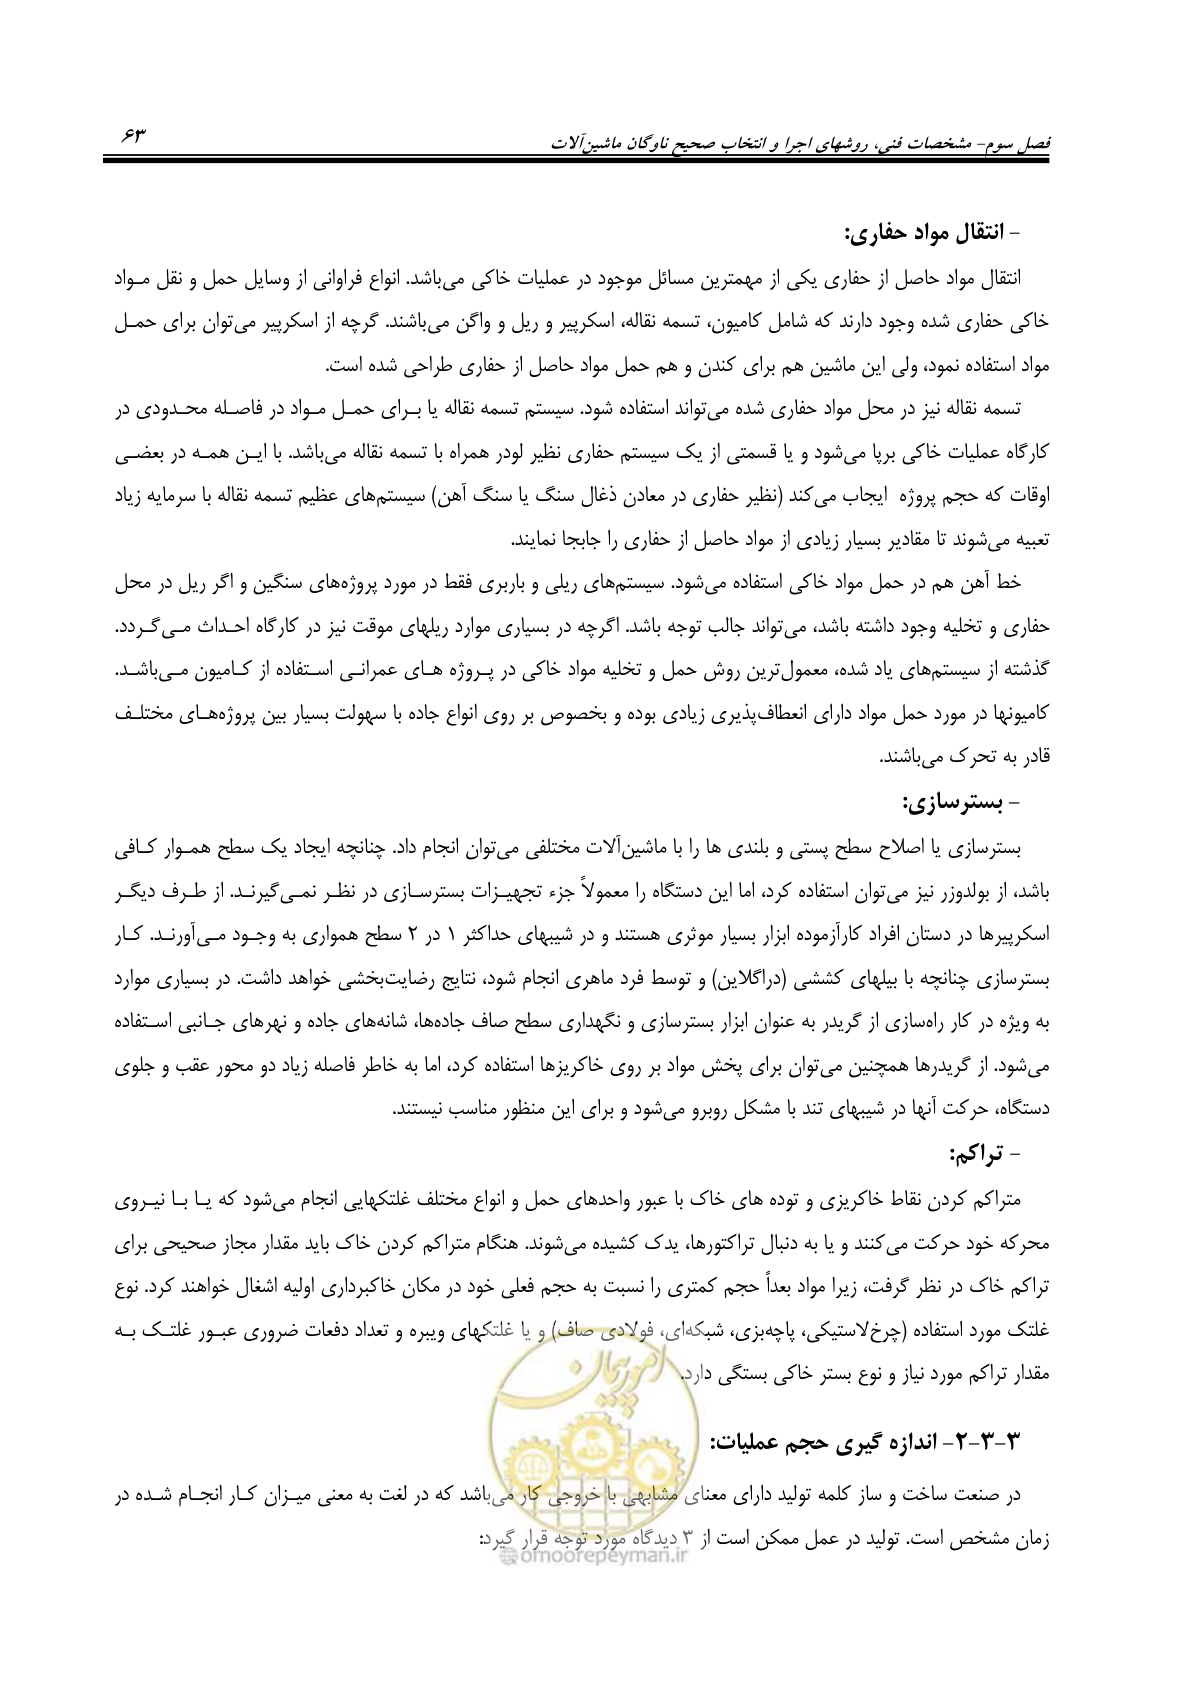 فصل سوم- مشخصات فنی، روشهای اجرا و انتخاب صحیح ناوگان ماشین‌آلات
۶۳
- انتقال مواد حفاری:
انتقال مواد حاصل از حفاری یکی از مهمترین مسائل موجود در عملیات خاکی می‌باشد. انواع فراوانی از وسایل حمل و نقل مـواد
خاکی حفاری شده وجود دارند که شامل کامیون، تسمه نقاله، اسکرپیر و ریل و واگن می‌باشند. گرچه از اسکرپیر می‌توان برای حمـل
مواد استفاده نمود، ولی این ماشین هم برای کندن و هم حمل مواد حاصل از حفاری طراحی شده است.
تسمه نقاله نیز در محل مواد حفاری شده می‌تواند استفاده شود. سیستم تسمه نقاله یا بـرای حمـل مـواد در فاصـله محـدودی در
کارگاه عملیات خاکی برپا می‌شود و یا قسمتی از یک سیستم حفاری نظیر لودر همراه با تسمه نقاله می‌باشد. با ایـن همـه در بعضـی
اوقات که حجم پروژه ایجاب می‌کند (نظیر حفاری در معادن ذغال سنگ یا سنگ آهن) سیستم‌های عظیم تسمه نقاله با سرمایه زیاد
تعبیه می‌شوند تا مقادیر بسیار زیادی از مواد حاصل از حفاری را جابجا نمایند.
خط آهن هم در حمل مواد خاکی استفاده می‌شود. سیستم‌های ریلی و باربری فقط در مورد پروژه‌های سنگین و اگر ریل در محل
حفاری و تخلیه وجود داشته باشد، می‌تواند جالب توجه باشد. اگرچه در بسیاری موارد ریلهای موقت نیز در کارگاه احـداث مـی‌گـردد.
گذشته از سیستم‌های یاد شده، معمول‌ترین روش حمل و تخلیه مواد خاکی در پـروژه هـای عمرانـی اسـتفاده از کـامیون مـی‌باشـد.
کامیونها در مورد حمل مواد دارای انعطاف‌پذیری زیادی بوده و بخصوص بر روی انواع جاده با سهولت بسیار بین پروژه‌هـای مختلـف
قادر به تحرک می‌باشند.
- بسترسازی:
بسترسازی یا اصلاح سطح پستی و بلندی ها را با ماشین‌آلات مختلفی می‌توان انجام داد. چنانچه ایجاد یک سطح همـوار کـافی
باشد، از بولدوزر نیز می‌توان استفاده کرد، اما این دستگاه را معمولاً جزء تجهیـزات بسترسـازی در نظـر نمـی‌گیرنـد. از طـرف دیگـر
اسکرپیرها در دستان افراد کارآزموده ابزار بسیار موثری هستند و در شیبهای حداکثر ۱ در ۲ سطح همواری به وجـود مـی‌آورنـد. کـار
بسترسازی چنانچه با بیلهای کششی (دراگلاین) و توسط فرد ماهری انجام شود، نتایج رضایت‌بخشی خواهد داشت. در بسیاری موارد
به ویژه در کار راه‌سازی از گریدر به عنوان ابزار بسترسازی و نگهداری سطح صاف جاده‌ها، شانه‌های جاده و نهرهای جـانبی اسـتفاده
می‌شود. از گریدرها همچنین می‌توان برای پخش مواد بر روی خاکریزها استفاده کرد، اما به خاطر فاصله زیاد دو محور عقب و جلوی
دستگاه، حرکت آنها در شیبهای تند با مشکل روبرو می‌شود و برای این منظور مناسب نیستند.
- تراکم:
متراکم کردن نقاط خاکریزی و توده های خاک با عبور واحدهای حمل و انواع مختلف غلتکهایی انجام می‌شود که یـا بـا نیـروی
محرکه خود حرکت می‌کنند و یا به دنبال تراکتورها، یدک کشیده می‌شوند. هنگام متراکم کردن خاک باید مقدار مجاز صحیحی برای
تراکم خاک در نظر گرفت، زیرا مواد بعداً حجم کمتری را نسبت به حجم فعلی خود در مکان خاکبرداری اولیه اشغال خواهند کرد. نوع
غلتک مورد استفاده (چرخ‌لاستیکی، پاچه‌بزی، شبکه‌ای، فولادی صاف) و یا غلتکهای ویبره و تعداد دفعات ضروری عبـور غلتـک بـه
مقدار تراکم مورد نیاز و نوع بستر خاکی بستگی دارد.
امور پیمان
۳-۳-۲- اندازه گیری حجم عملیات:
در صنعت ساخت و ساز کلمه تولید دارای معنای مشابهی با خروجی کار می‌باشد که در لغت به معنی میـزان کـار انجـام شـده در
زمان مشخص است. تولید در عمل ممکن است از ۳ دیدگاه مورد توجه قرار گیرد:
@omoorepeyman.ir